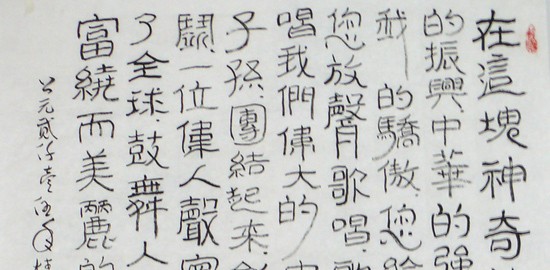 在這塊神奇
的振興,中華的強
我的驕傲,您給
您放聲歌唱,歌
唱我們偉大的
子孫團結起來,
鬭,一位偉人
了全球,鼓舞人
富繞而美麗的
公元貳仟壹伍年